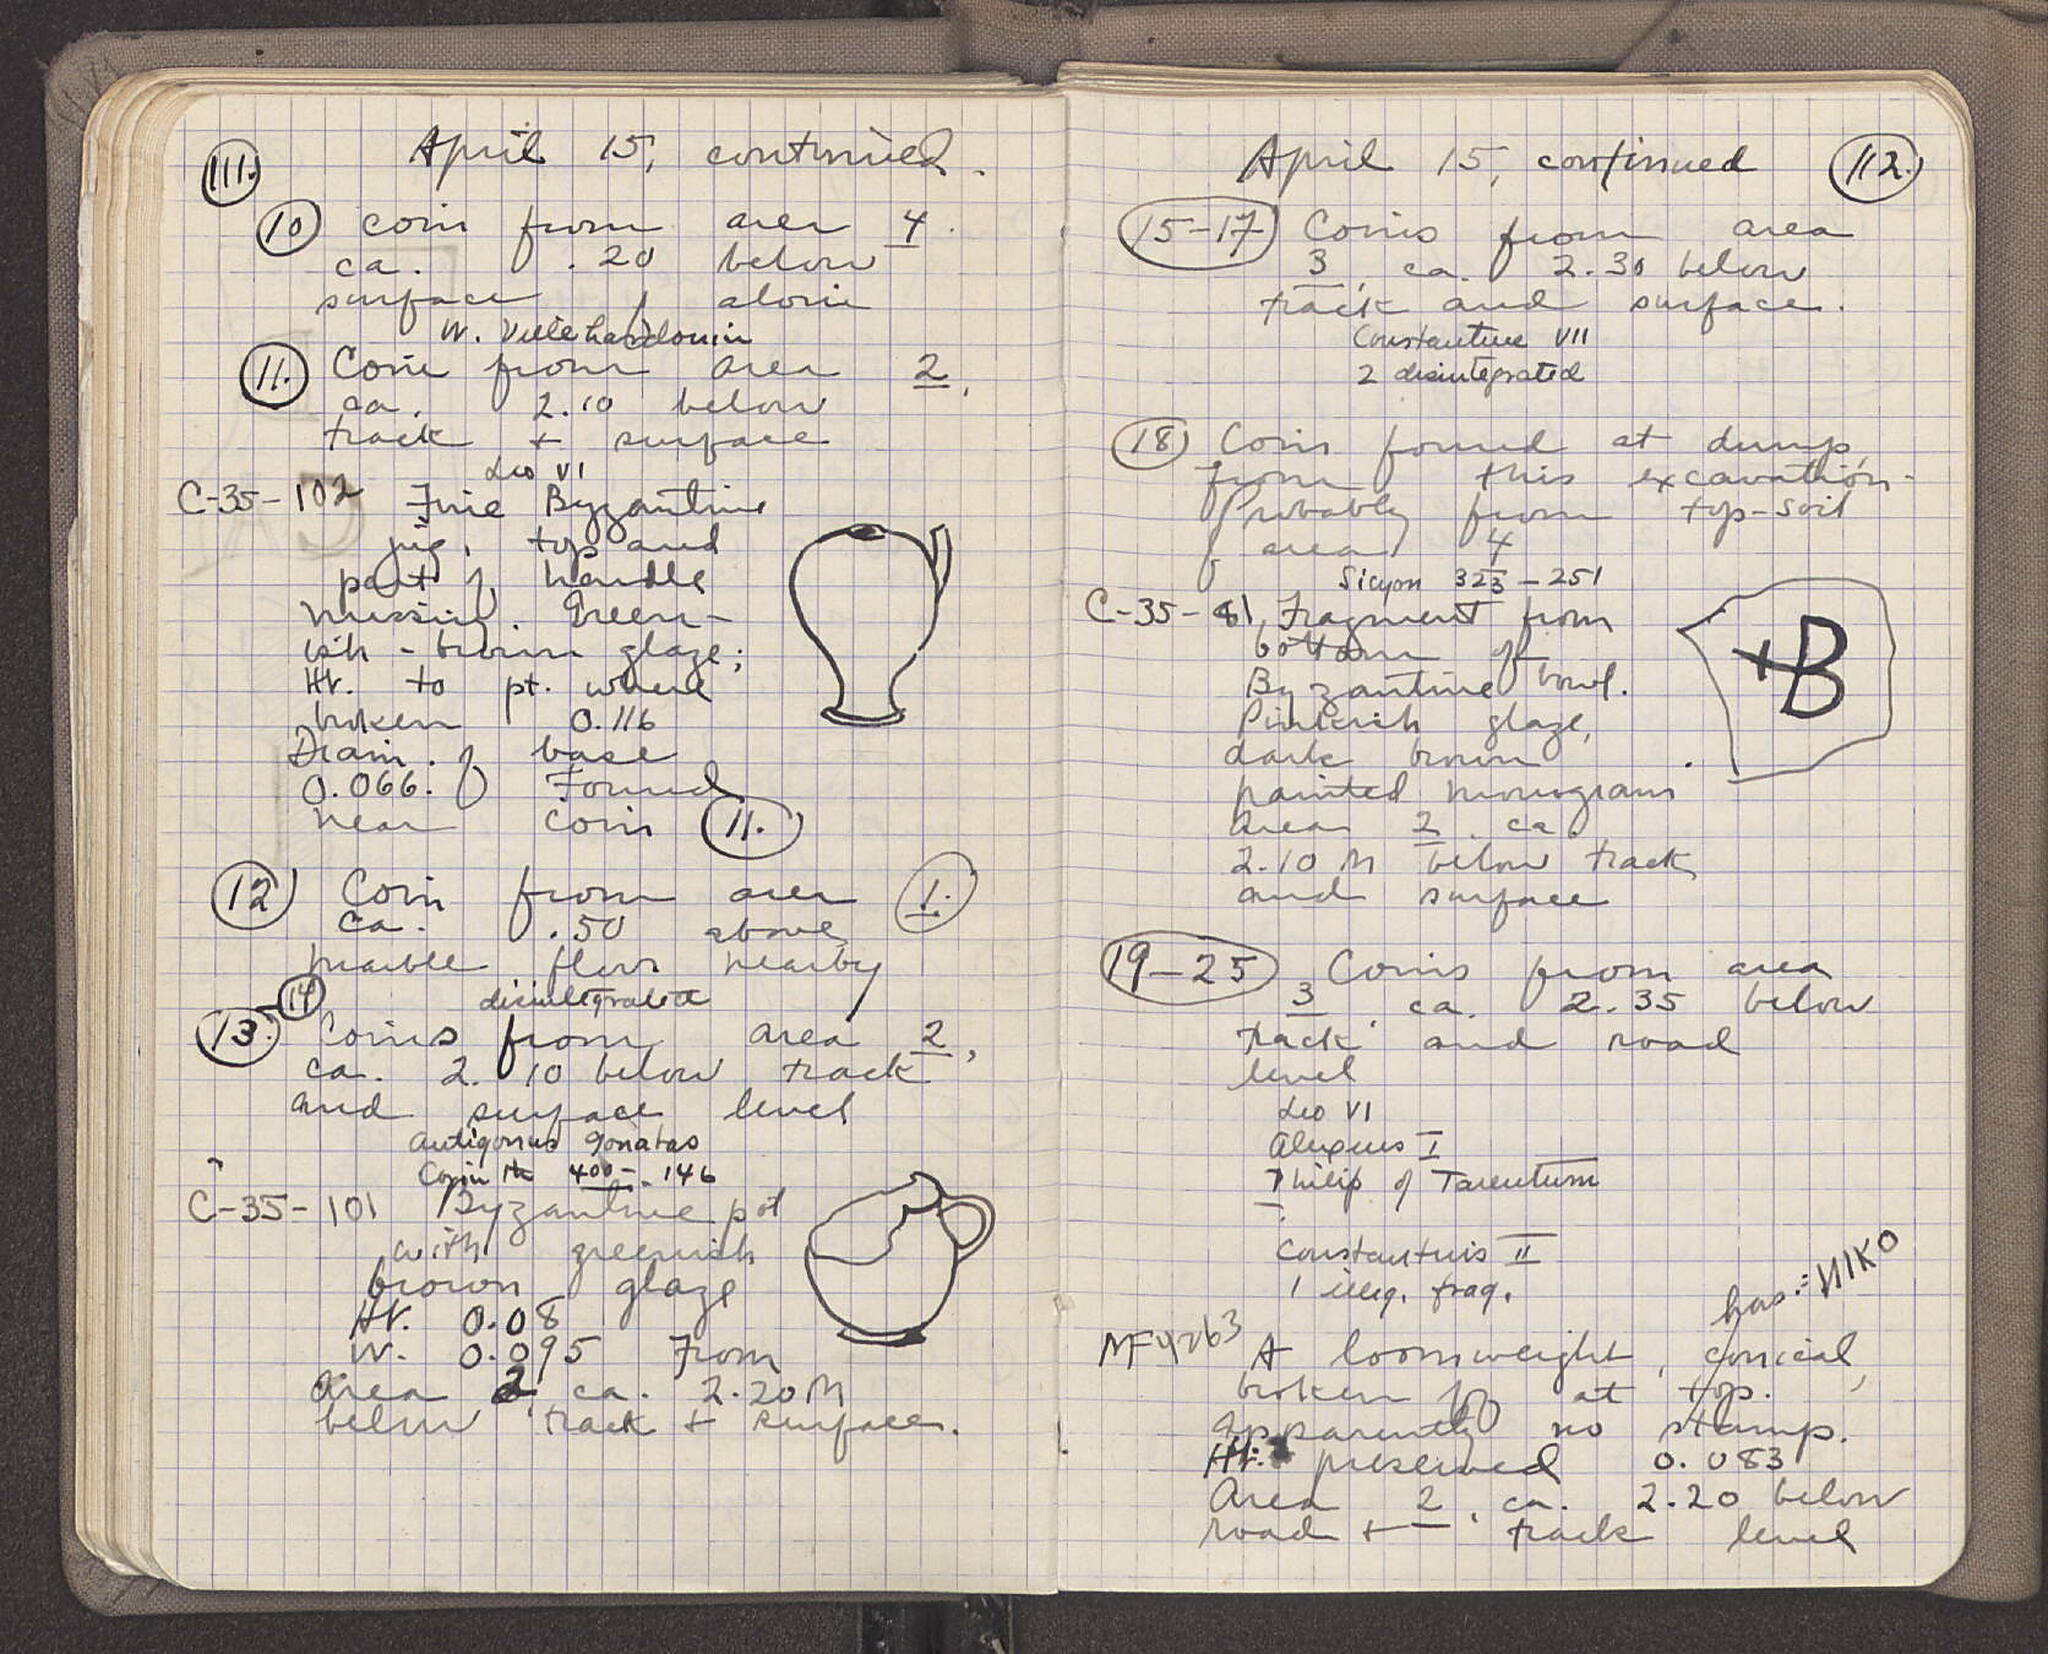 111.
April 15, continued.
10 coin from area 4.
ca. .20 below
surface, alone
W. Villehardouin
11. Coin from area 2,
ca. 2.10 below
track + surface
Leo VI
C-35-102 Fine Byzantine
jug, top and
part of handle
missing. Green-
ish-brown glaze;
Ht. to pt. where
broken 0.116
Diam. of base
0.066. Found
near coin 11.
12 Coin from area 1.
ca. .50 above
marble floor nearby
disintegrated
13.-14 Coins from area 2,
ca. 2.10 below track
and surface level
Antigonus Gonatas
Corinth 400-146
C-35-101 Byzantine pot
with greenish
brown glaze
Ht. 0.08
W. 0.095 From
area 2, ca. 2.20 M
below track + surface.
April 15, continued 112.
15-17 Coins from area
3, ca. 2.30 below
track and surface.
Constantine VII
2 disintegrated
18 Coin found at dump,
from this excavation.
Probably from top-soil
area 4
Sicyon 323-251
C-35-81 Fragment from
bottom of
Byzantine bowl.
Pinkish glaze,
dark brown
painted monogram
Area 2, ca.
2.10 M below track
and surface
+B
19-25 Coins from area
3, ca. 2.35 below
track and road
level
Leo VI
Alexius I
Philip of Tarentum
Constantius II
1 illeg. frag.
has: NIKO
MF4263 A loomweight, conical,
broken at top.
Apparently no stamp.
Ht. preserved 0.083
Area 2, ca. 2.20 below
road + track level